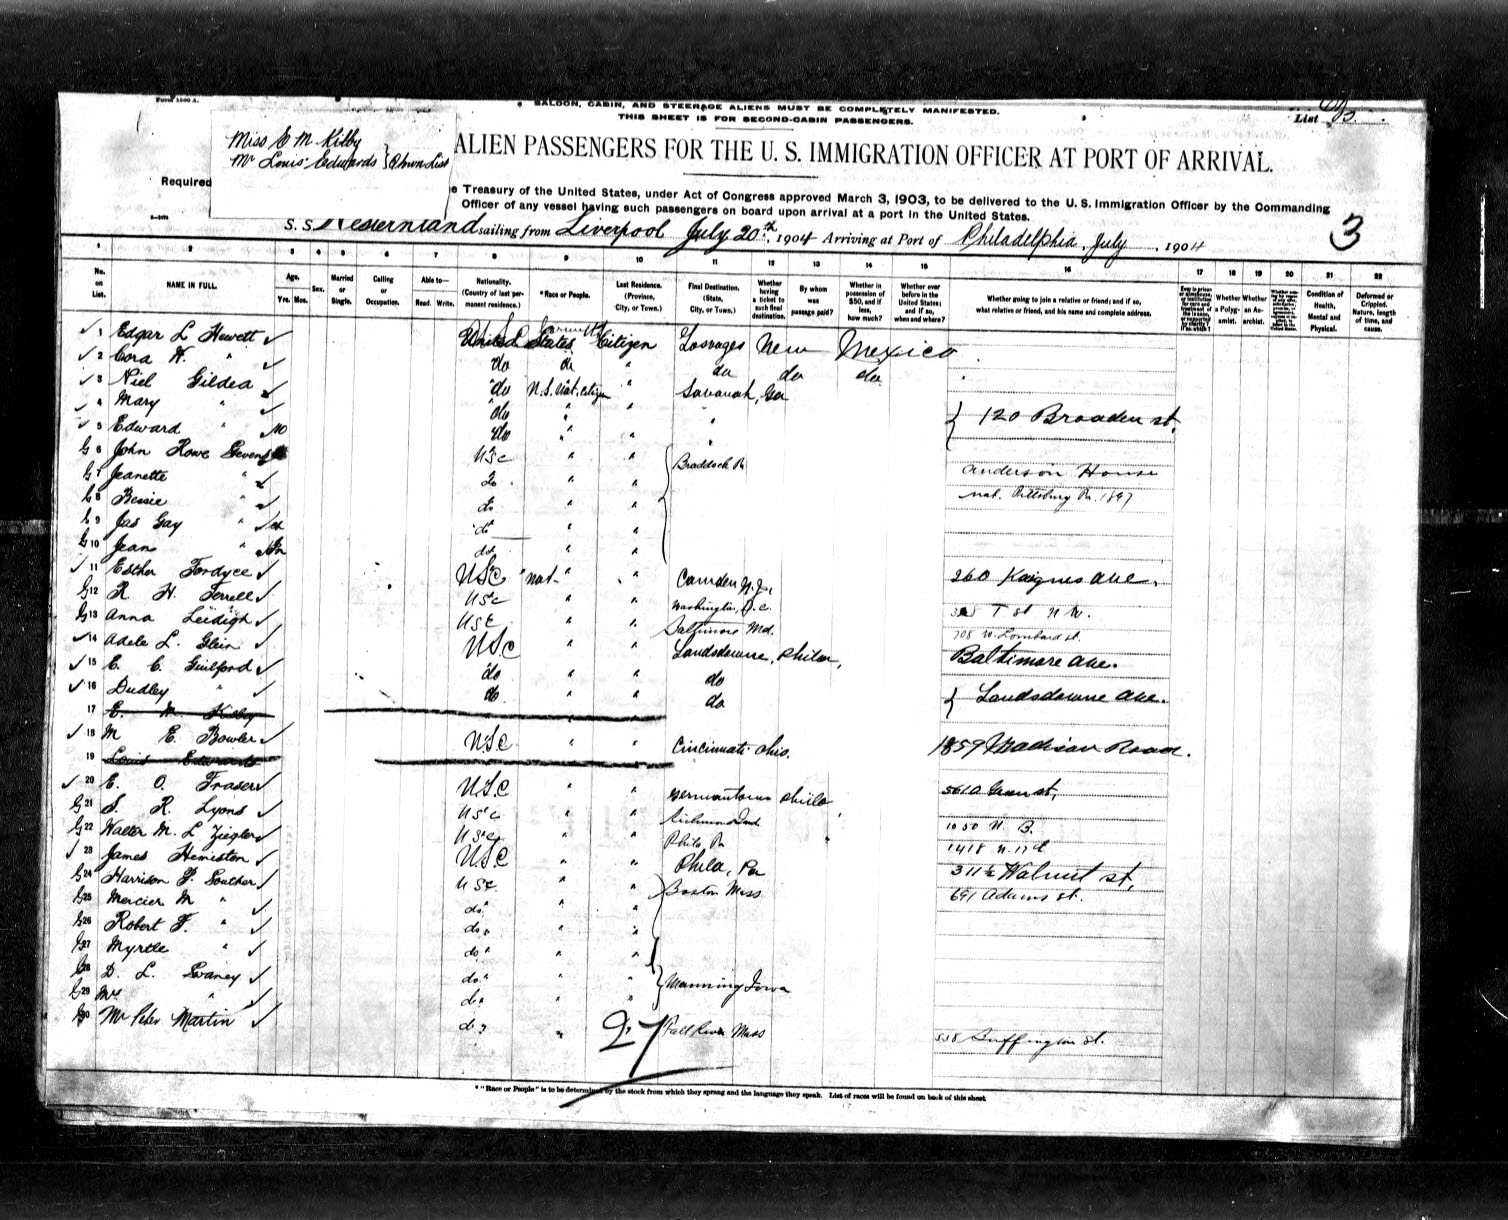 Form 1500 A.
SALOON, CABIN, AND STEERAGE ALIENS MUST BE COMPLETELY MANIFESTED.
THIS SHEET IS FOR SECOND-CABIN PASSENGERS.
List
Miss E M Kilby
Mr Louis Edwards } Own List
ALIEN PASSENGERS FOR THE U. S. IMMIGRATION OFFICER AT PORT OF ARRIVAL.
Required
e Treasury of the United States, under Act of Congress approved March 3, 1903, to be delivered to the U. S. Immigration Officer by the Commanding
Officer of any vessel having such passengers on board upon arrival at a port in the United States.
S. S. Westernland sailing from Liverpool July 20th, 1904 Arriving at Port of Philadelphia, July , 1904
3
1 2 3 4 5 6 7 8 9 10 11 12 13 14 15 16 17 18 19 20 21 22
No. on List. NAME IN FULL. Age. Yrs. Mos. Sex. Married or Single. Calling or Occupation. Able to— Read. Write. Nationality. (Country of last permanent residence.) *Race or People. Last Residence. (Province, City, or Town.) Final Destination. (State, City, or Town.) Whether having a ticket to such final destination. By whom was passage paid? Whether in possession of $50, and if less, how much? Whether ever before in the United States; and if so, when and where? Whether going to join a relative or friend; and if so, what relative or friend, and his name and complete address. Whether a Polygamist. Whether an Anarchist. Condition of Health, Mental and Physical. Deformed or Crippled. Nature, length of time, and cause.
1 Edgar L Hewett United States Citizen New Mexico
2 Cora W. " do do " do do do
3 Niel Gildea do Citizen " Savanah, Ga
4 Mary " do " " "
120 Broaden st.
5 Edward " do " " "
6 John Rowe USC " " Braddock Pa
Anderson House
7 Jeanette " do " "
nat. Pittsburg Pa. 1897
8 Bessie " do " "
9 Jas Gay " do " "
10 Jean " do " "
11 Esther Fordyce USC nat " " Camden N.J. 360 Kaigns ave.
12 R H. Terrell USC " " Washington, D.C. T st N W.
13 Anna Leidigh USC " " Baltimore Md. 708 W. Lombard st.
14 Adele L. Glein USC " " Landsdowne, Phila, Baltimore ave.
15 E. C. Guilford do " " do
16 Dudley " do " " do Landsdowne ave.
17 E. M Kilby
18 M E. Bowler USC " " Cincinnati Ohio. 1859 Madison Road.
19 Louis Edwards
20 E. O. Fraser USC " " Germantown Phila 5610 Green st,
21 S. R. Lyons USC " " Richmond Ind 1050 N. B.
22 Walter M. L Ziegler USC " " Phila Pa 1418 N. 17th
23 James Hemiston USC " " Phila, Pa 311½ Walnut st,
24 Harrison F. Souther USC " " Boston Mass 691 Adams st.
25 Mercier M " do " "
26 Robert F. " do " "
27 Myrtle " do " "
28 D. L. Swaney do " " Manning Iowa
29 Mrs " do " "
30 Mr Peter Martin do " " Fall River Mass Buffington st.
27
* "Race or People" is to be determined by the stock from which they sprang and the language they speak. List of races will be found on back of this sheet.